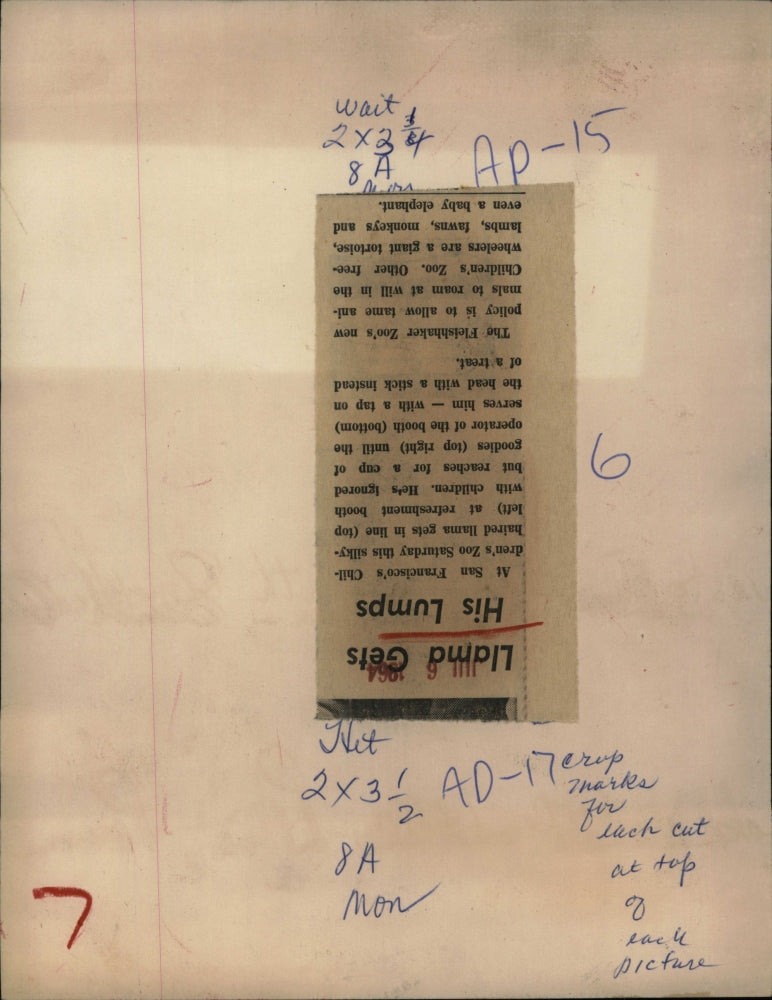 wait
2 x 3 3/4
8 A
AP-15
Llama Gets
JUL 6 1964
His Lumps
At San Francisco's Chil-
dren's Zoo Saturday this silky-
haired llama gets in line (top
left) at refreshment booth
with children. He's ignored
but reaches for a cup of
goodies (top right) until the
operator of the booth (bottom)
serves him — with a tap on
the head with a stick instead
of a treat.
The Fleishhaker Zoo's new
policy is to allow tame ani-
mals to roam at will in the
Children's Zoo. Other free-
wheelers are a giant tortoise,
lambs, fawns, monkeys and
even a baby elephant.
6
2 x 3 1/2
AD-17
8 A
Mon
crop
marks
for
each cut
at top
of
each
picture
7